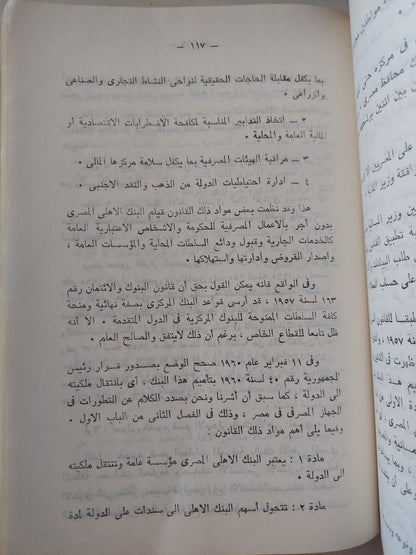 — ١١٧ —
بما يكفل مقابلة الحاجات الحقيقية لنواحى النشاط التجارى والصناعى
والزراعى .
٢ — اتخاذ التدابير المناسبة لمكافحة الاضطرابات الاقتصادية أو
المالية العامة والمحلية .
٣ — مراقبة الهيئات المصرفية بما يكفل سلامة مركزها المالى .
٤ — ادارة احتياطيات الدولة من الذهب والنقد الاجنبى .
هذا وقد نظمت بعض مواد ذلك القانون قيام البنك الاهلى المصرى
بدون أجر بالاعمال المصرفية للحكومة والاشخاص الاعتبارية العامة
كالخدمات الجارية وقبول ودائع السلطات المحلية والمؤسسات العامة ،
واصدار القروض وادارتها واستهلاكها .
وفى الواقع فانه يمكن القول بحق أن قانون البنوك والائتمان رقم
١٦٣ لسنة ١٩٥٧ ، قد أرسى قواعد البنك المركزى بصفة نهائية ومنحه
كافة السلطات الممنوحة للبنوك المركزية فى الدول المتقدمة . الا أنه
ظل تابعا للقطاع الخاص ، برغم أن ذلك لايتفق والصالح العام .
وفى ١١ فبراير عام ١٩٦٠ صحح الوضع بصدور قرار رئيس
الجمهورية رقم ٤٠ لسنة ١٩٦٠ بتأميم هذا البنك ، أى بانتقال ملكيته
الى الدولة ، كما سبق أن أشرنا ونحن بصدد الكلام عن التطورات فى
الجهاز المصرفى فى مصر ، وذلك فى الفصل الثانى من الباب الاول .
وفيما يلى أهم مواد ذلك القانون :
مادة ١ : يعتبر البنك الاهلى المصرى مؤسسة عامة وتنتقل ملكيته
الى الدولة .
مادة ٢ : تتحول أسهم البنك الاهلى الى سندات على الدولة لمدة